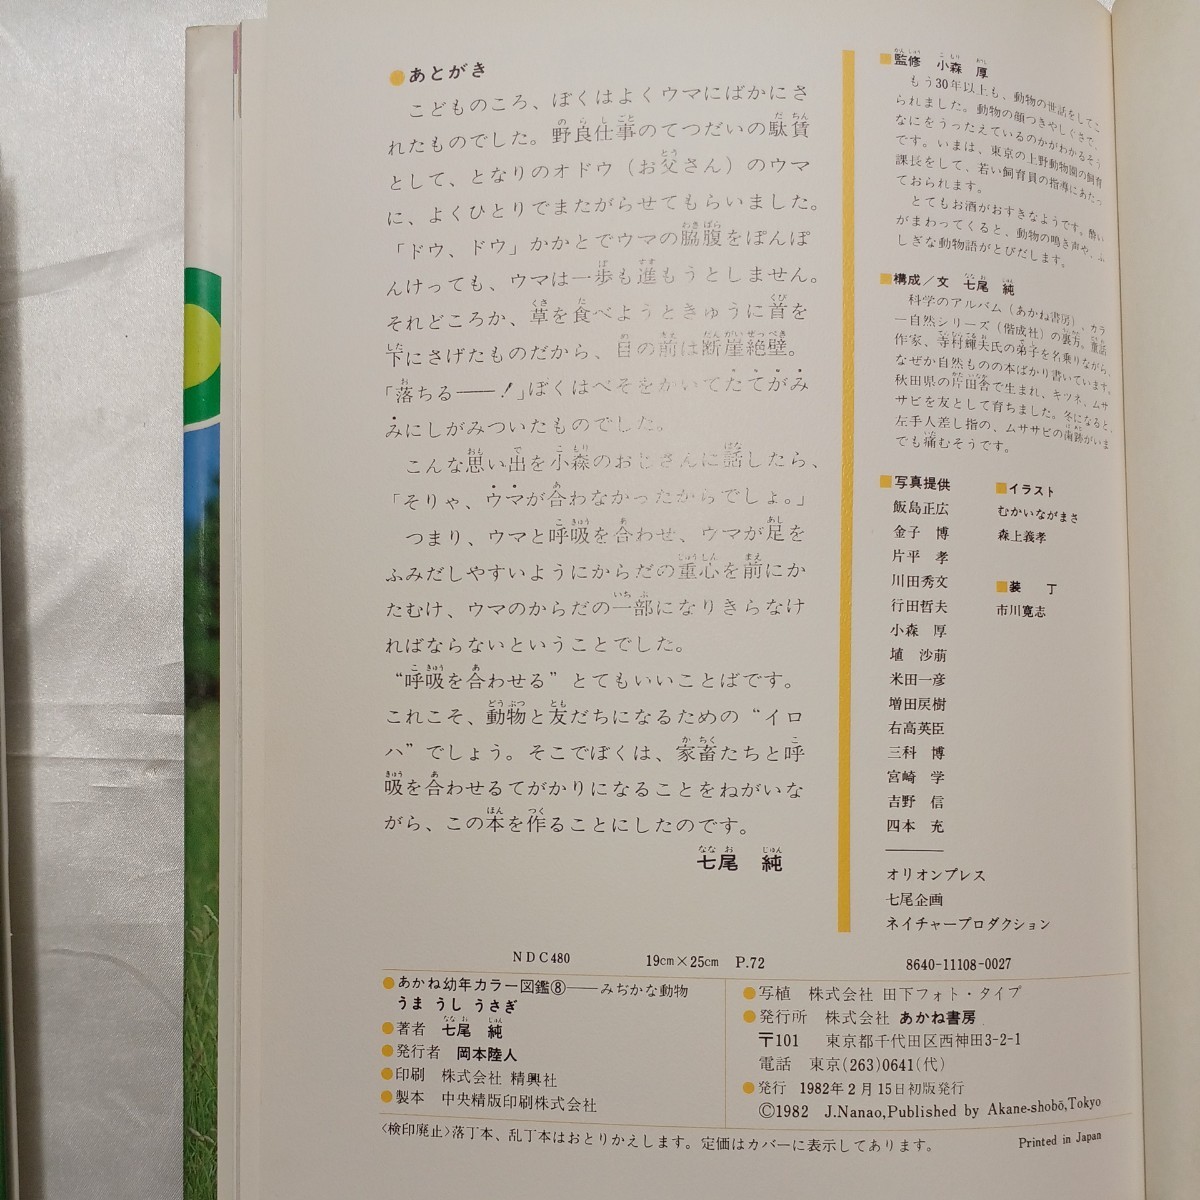 ●あとがき
こどものころ、ぼくはよくウマにばかにさ
れたものでした。野良仕事のてつだいの駄賃
として、となりのオドウ（お父さん）のウマ
に、よくひとりでまたがらせてもらいました。
「ドウ、ドウ」かかとでウマの脇腹をぽんぽ
んけっても、ウマは一歩も進もうとしません。
それどころか、草を食べようときゅうに首を
下にさげたものだから、目の前は断崖絶壁。
「落ちる――！」ぼくはべそをかいてたてがみ
みにしがみついたものでした。
こんな思い出を小森のおじさんに話したら、
「そりゃ、ウマが合わなかったからでしょ。」
つまり、ウマと呼吸を合わせ、ウマが足を
ふみだしやすいようにからだの重心を前にか
たむけ、ウマのからだの一部になりきらなけ
ればならないということでした。
“呼吸を合わせる”とてもいいことばです。
これこそ、動物と友だちになるための“イロ
ハ”でしょう。そこでぼくは、家畜たちと呼
吸を合わせるてがかりになることをねがいな
がら、この本を作ることにしたのです。
七尾 純
■監修 小森 厚
もう30年以上も、動物の世話をしてこ
られました。動物の顔つきやしぐさで、
なにをうったえているのかがわかるそう
です。いまは、東京の上野動物園の飼育
課長をして、若い飼育員の指導にあたっ
ておられます。
とてもお酒がおすきなようです。酔い
がまわってくると、動物の鳴き声や、ふ
しぎな動物語がとびだします。
■構成／文 七尾 純
科学のアルバム（あかね書房）、カラ
ー自然シリーズ（偕成社）の裏方。童話
作家、寺村輝夫氏の弟子を名乗りながら、
なぜか自然ものの本ばかり書いています。
秋田県の片田舎で生まれ、キツネ、ムサ
サビを友として育ちました。冬になると、
左手人差し指の、ムササビの歯跡がいま
でも痛むそうです。
■写真提供
飯島正広
金子 博
片平 孝
川田秀文
行田哲夫
小森 厚
埴 沙萠
米田一彦
増田戻樹
右高英臣
三科 博
宮崎 学
吉野 信
四本 充
オリオンプレス
七尾企画
ネイチャープロダクション
■イラスト
むかいながまさ
森上義孝
■装 丁
市川寛志
NDC480 19cm×25cm P.72 8640-11108-0027
●あかね幼年カラー図鑑⑧――みぢかな動物
うま うし うさぎ
●著者 七尾 純
●発行者 岡本陸人
●印刷 株式会社 精興社
●製本 中央精版印刷株式会社
●写植 株式会社 田下フォト・タイプ
●発行所 株式会社 あかね書房
〒101 東京都千代田区西神田3-2-1
電話 東京(263)0641(代)
●発行 1982年2月15日初版発行
©1982 J.Nanao,Published by Akane-shobō,Tokyo
〈検印廃止〉落丁本、乱丁本はおとりかえします。定価はカバーに表示してあります。
Printed in Japan